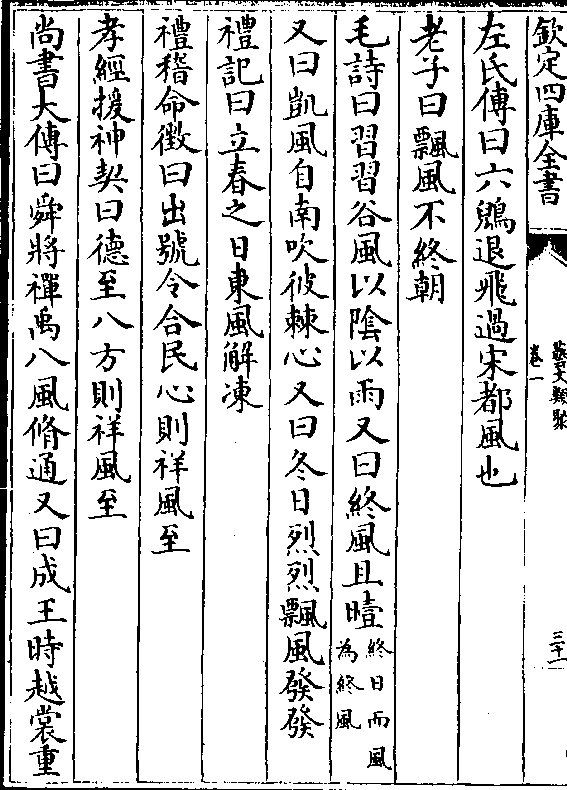 欽定四庫全書
藝文類聚
卷一
三十一
左氏傳曰六鷁退飛過宋都風也
老子曰飄風不終朝
毛詩曰習習谷風以陰以雨又曰終風且曀終日而風為終風
又曰凱風自南吹彼棘心又曰冬日烈烈飄風發發
禮記曰立春之日東風解凍
禮稽命徴曰出號令合民心則祥風至
孝經援神契曰德至八方則祥風至
尚書大傳曰舜將禪禹八風脩通又曰成王時越裳重